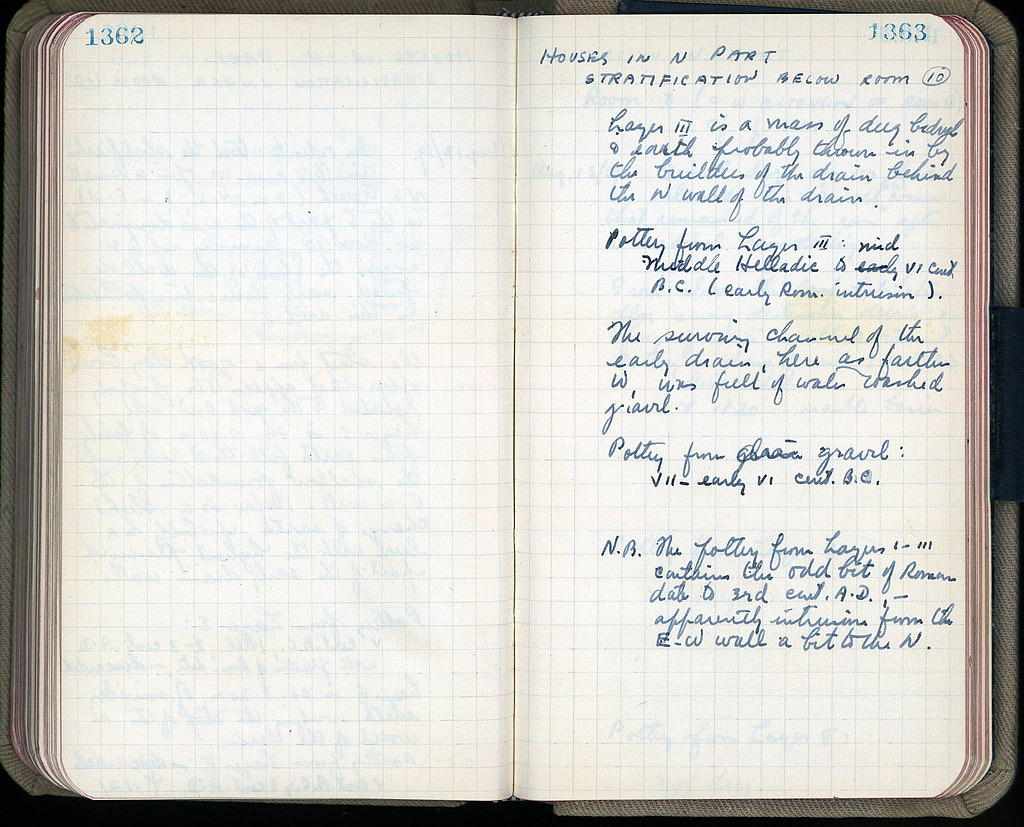 1362
1363
HOUSES IN N PART
STRATIFICATION BELOW ROOM 10
Layer III is a mass of dug bedrock
& earth probably thrown in by
the builders of the drain behind
the N wall of the drain.
Pottery from Layer III: mid
Middle Helladic to early VI cent
B.C. (early Rom. intrusion).
The surviving channel of the
early drain, here as farther
W, was full of water washed
gravel.
Pottery from gravel:
VII - early VI cent. B.C.
N.B. The pottery from Layers I-III
contains the odd bit of Roman
date to 3rd cent. A.D., -
apparently intrusion from the
E-W wall a bit to the N.